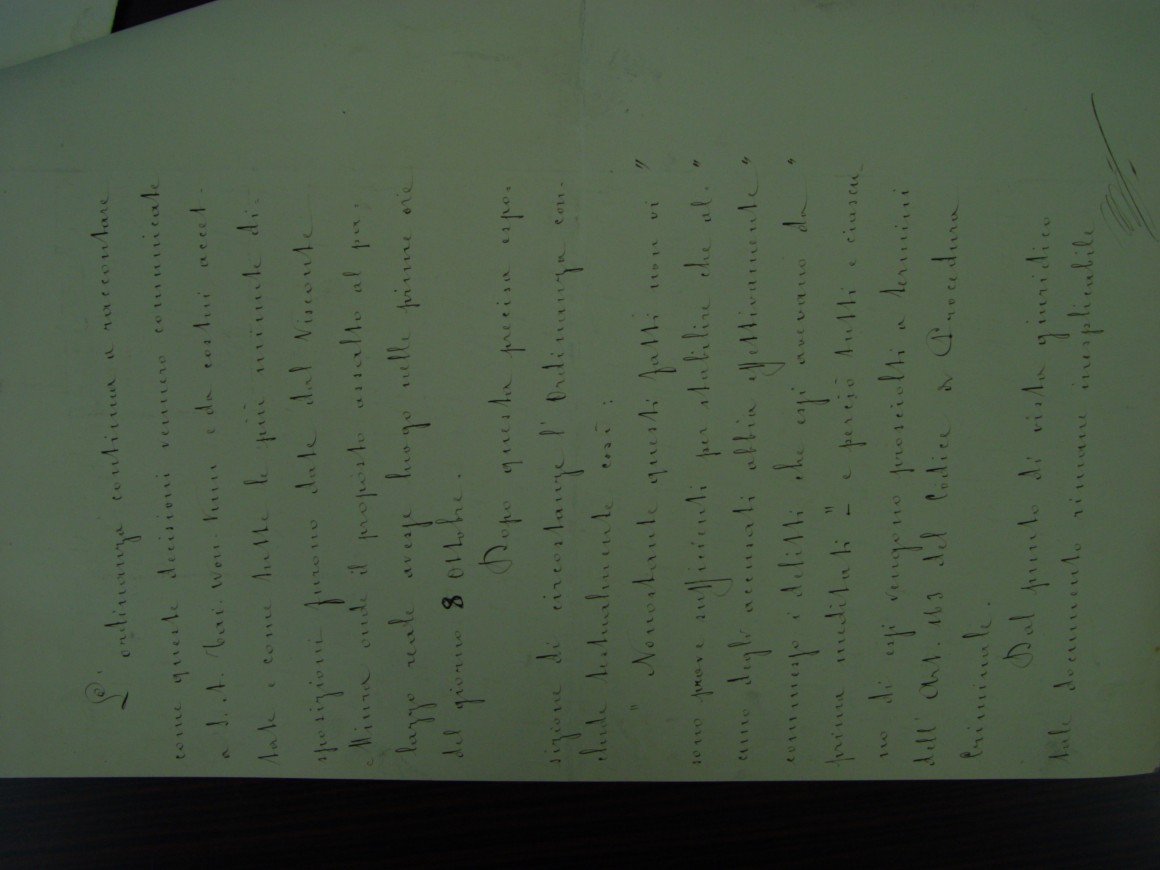 L' ordinanza continua a raccontare
come queste decisioni vennero comunicate
a S. A. Tai-Won-Kun e da costui accet-
tate e come tutte le più minute di-
sposizioni furono date dal Visconte
Miura onde il proposto assalto al pa-
lazzo reale avesse luogo nelle prime ore
del giorno 8 Ottobre.
Dopo questa precisa espo-
sizione di circostanze l' Ordinanza con-
clude testualmente così:
" Nonostante questi fatti non vi "
sono prove sufficienti per stabilire che al- "
cuno degli accusati abbia effettivamente "
commesso i delitti che essi avevano da "
prima meditati " – e perciò tutti e ciascu
no di essi vengono prosciolti a termini
dell' Art. 163 del Codice di Procedura
Criminale.
Dal punto di vista giuridico
tale documento rimane inesplicabile